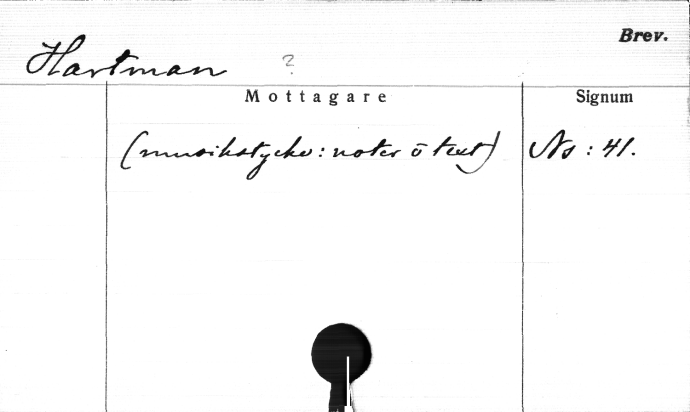 Brev.
Hartman ?
Mottagare Signum
(musikstycke: noter o text) Ns: 41.